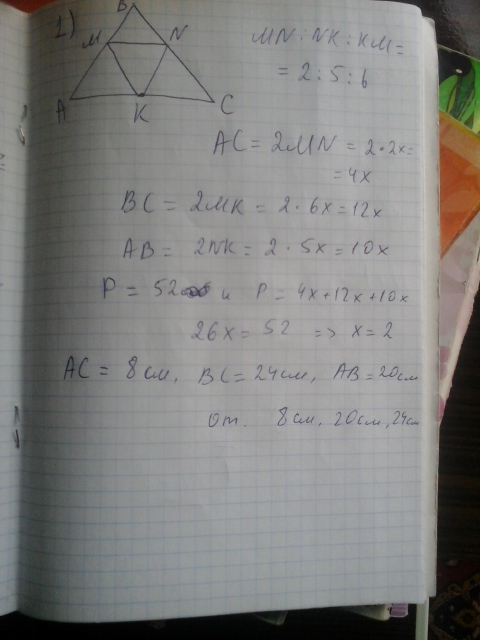 1)
B
M N
A K C
MN : NK : KM =
= 2 : 5 : 6
AC = 2MN = 2·2x =
= 4x
BC = 2MK = 2·6x = 12x
AB = 2NK = 2·5x = 10x
P = 52 и P = 4x+12x+10x
26x = 52 => x = 2
AC = 8см, BC = 24см, AB = 20см
от. 8см, 20см, 24см